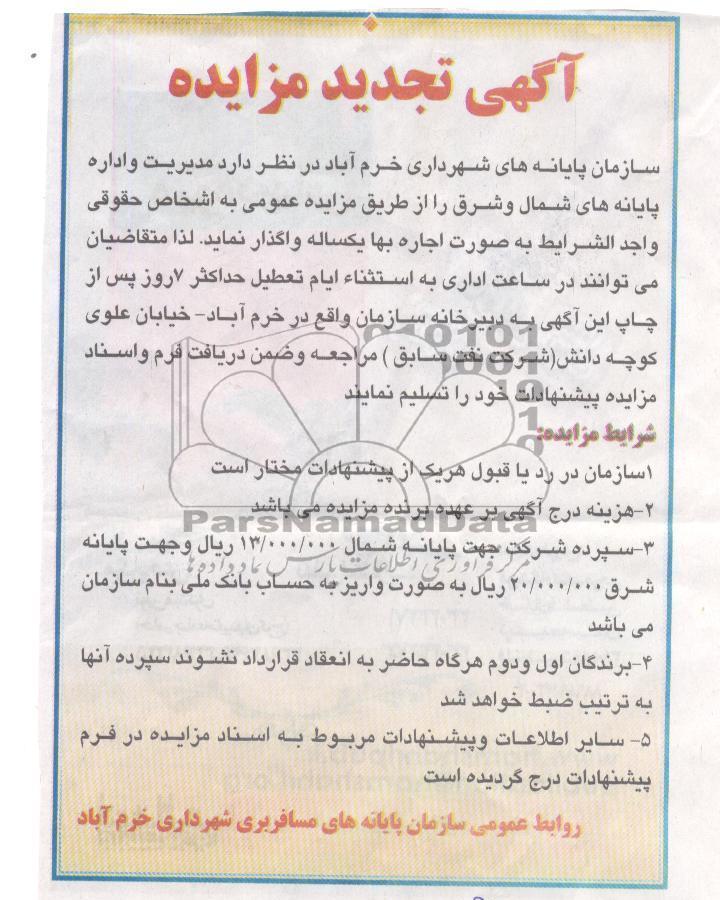 آگهی تجدید مزایده
سازمان پایانه های شهرداری خرم آباد در نظر دارد مدیریت واداره
پایانه های شمال وشرق را از طریق مزایده عمومی به اشخاص حقوقی
واجد الشرایط به صورت اجاره بها یکساله واگذار نماید. لذا متقاضیان
می توانند در ساعت اداری به استثناء ایام تعطیل حداکثر ۷روز پس از
چاپ این آگهی به دبیرخانه سازمان واقع در خرم آباد- خیابان علوی
کوچه دانش(شرکت نفت سابق ) مراجعه وضمن دریافت فرم واسناد
مزایده پیشنهادات خود را تسلیم نمایند
شرایط مزایده:
۱سازمان در رد یا قبول هریک از پیشنهادات مختار است
۲-هزینه درج آگهی بر عهده برنده مزایده می باشد
ParsNamadData
۳-سپرده شرکت جهت پایانه شمال ۱۳/۰۰۰/۰۰۰ ریال وجهت پایانه
مرکز فرآوری اطلاعات پارس نماد داده ها
شرق۲۰/۰۰۰/۰۰۰ ریال به صورت واریز به حساب بانک ملی بنام سازمان
می باشد
۴-برندگان اول ودوم هرگاه حاضر به انعقاد قرارداد نشوند سپرده آنها
به ترتیب ضبط خواهد شد
۵- سایر اطلاعات وپیشنهادات مربوط به اسناد مزایده در فرم
پیشنهادات درج گردیده است
روابط عمومی سازمان پایانه های مسافربری شهرداری خرم آباد